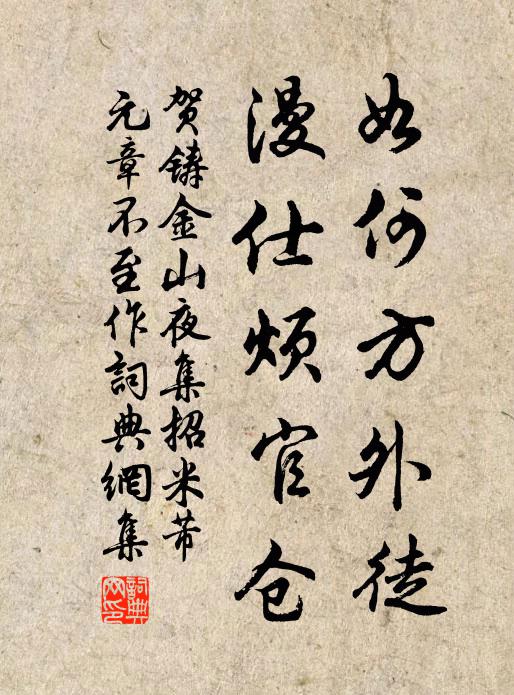 如何方外徒
漫仕烦官仓
贺铸金山夜集招米芾
元章不至作詞典網集
詞典
网印